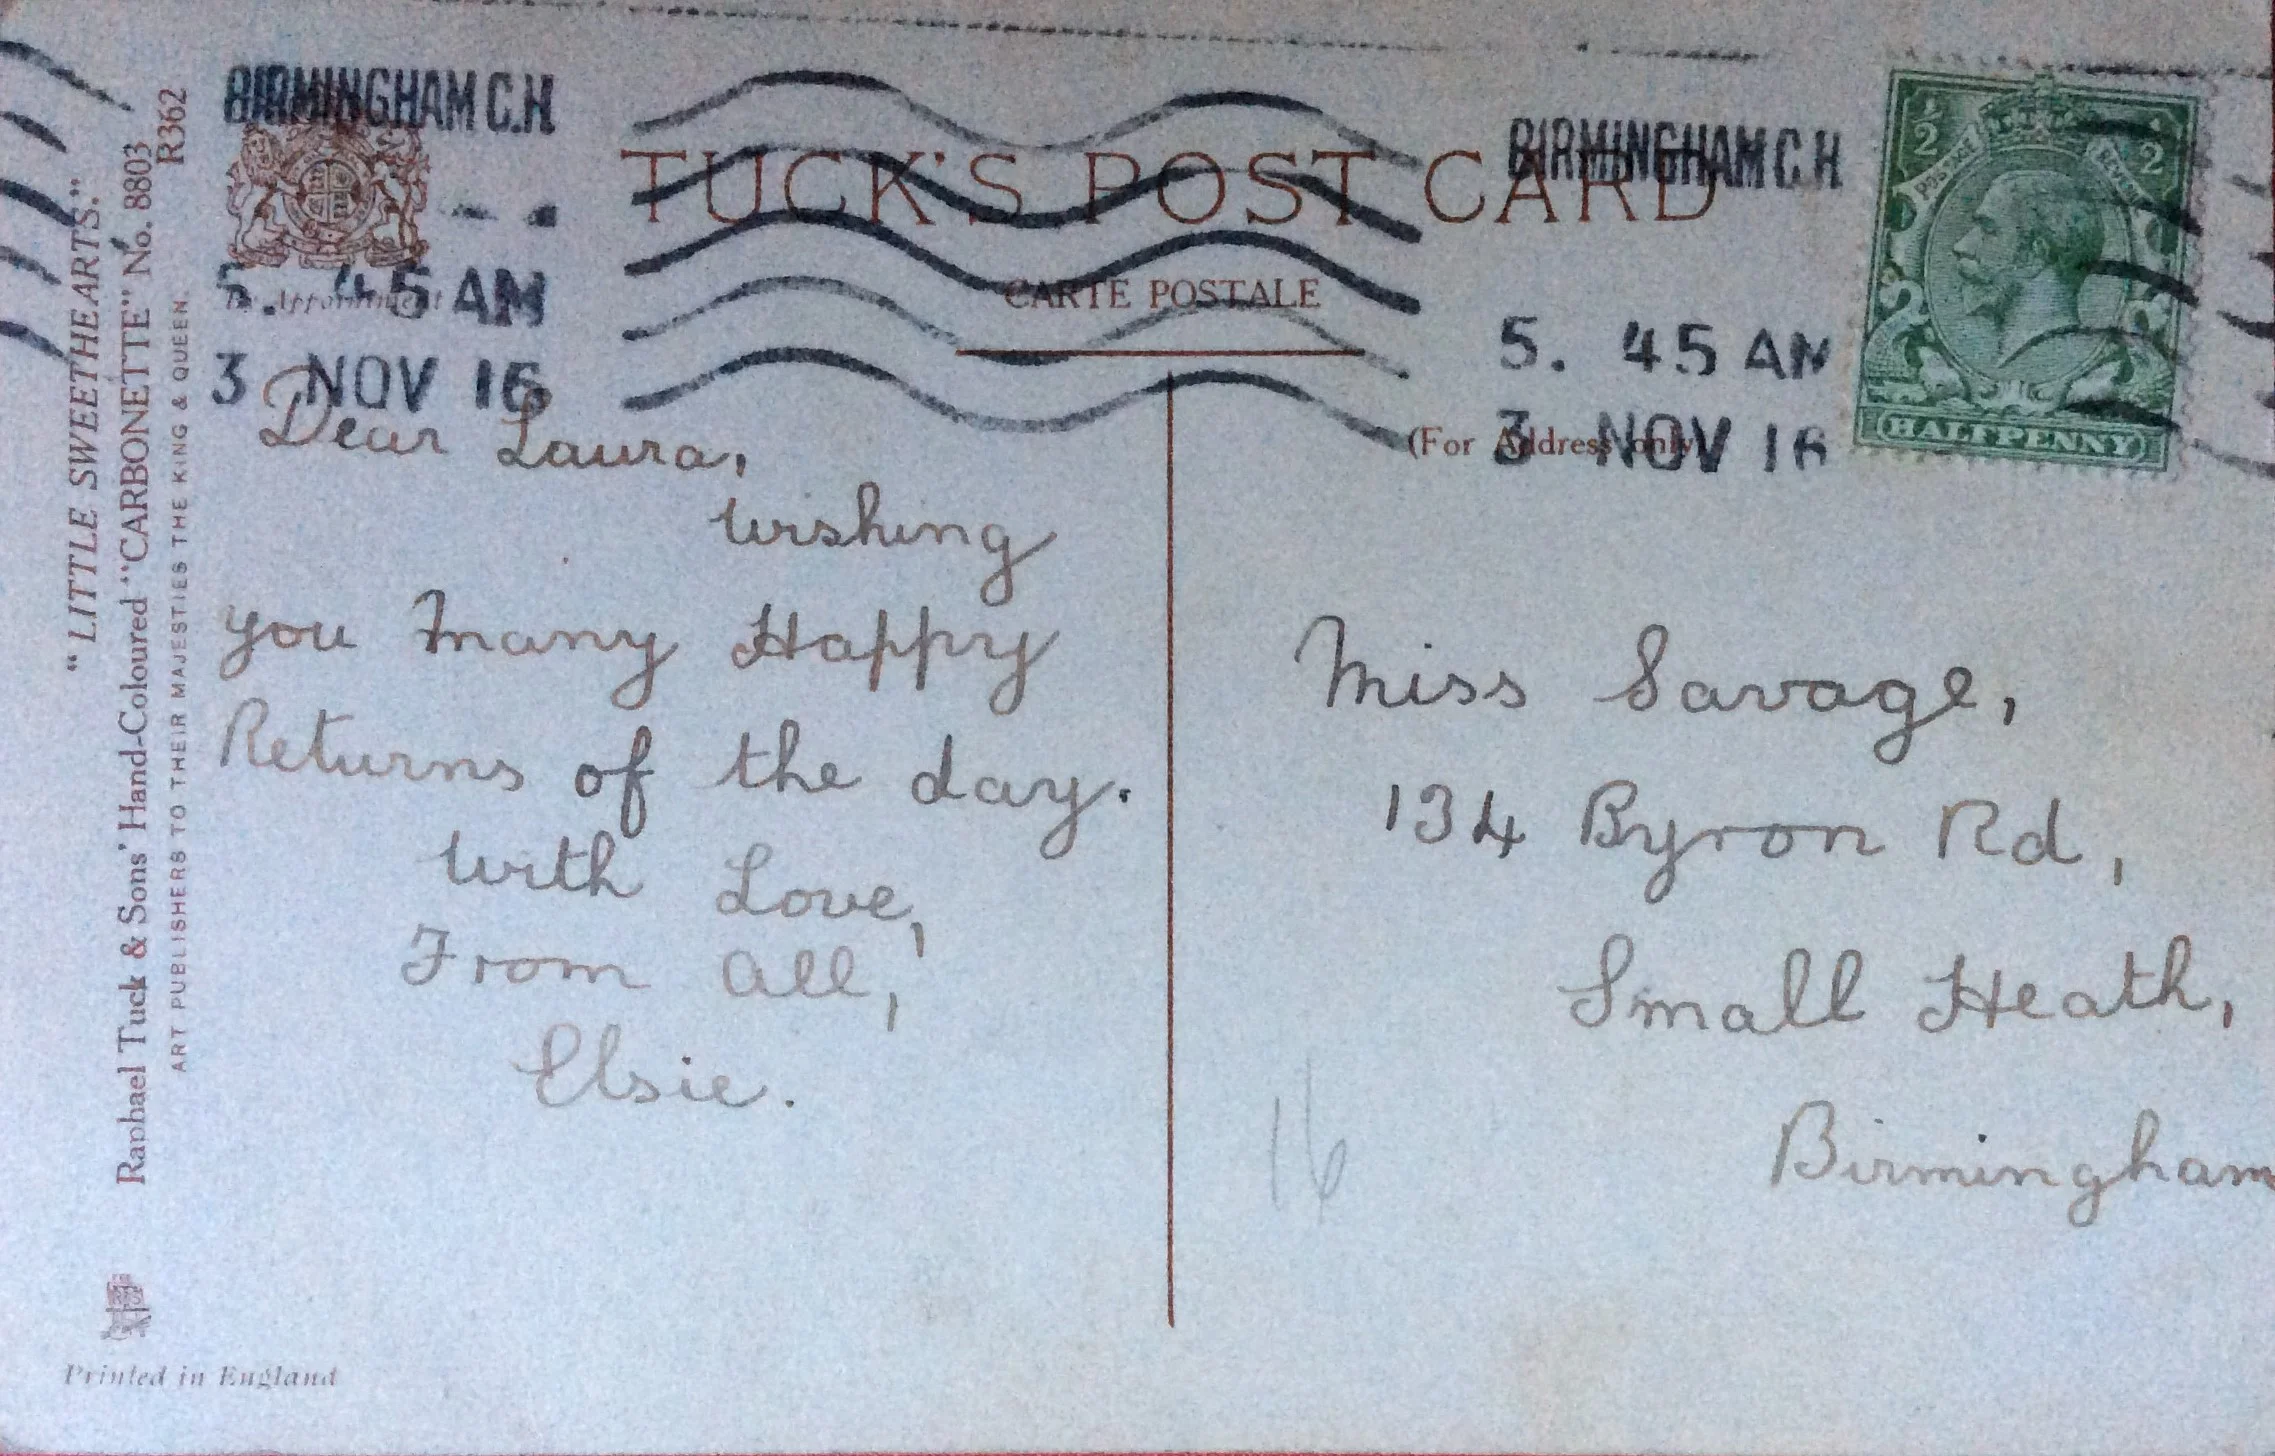 BIRMINGHAM C.H
5. 45 AM
3 NOV 16
TUCK'S POST CARD
CARTE POSTALE
BIRMINGHAM C H
5. 45 AM
3 NOV 16
By Appointment
(For Address only)
½ ½
POSTAGE REVENUE
HALFPENNY
"LITTLE SWEETHEARTS."
Raphael Tuck & Sons' Hand-Coloured "CARBONETTE" No. 8803
R362
ART PUBLISHERS TO THEIR MAJESTIES THE KING & QUEEN.
Dear Laura,
Wishing
you Many Happy
Returns of the day.
With Love,
From all,
Elsie.
Miss Savage,
134 Byron Rd,
Small Heath,
Birmingham
16
Printed in England